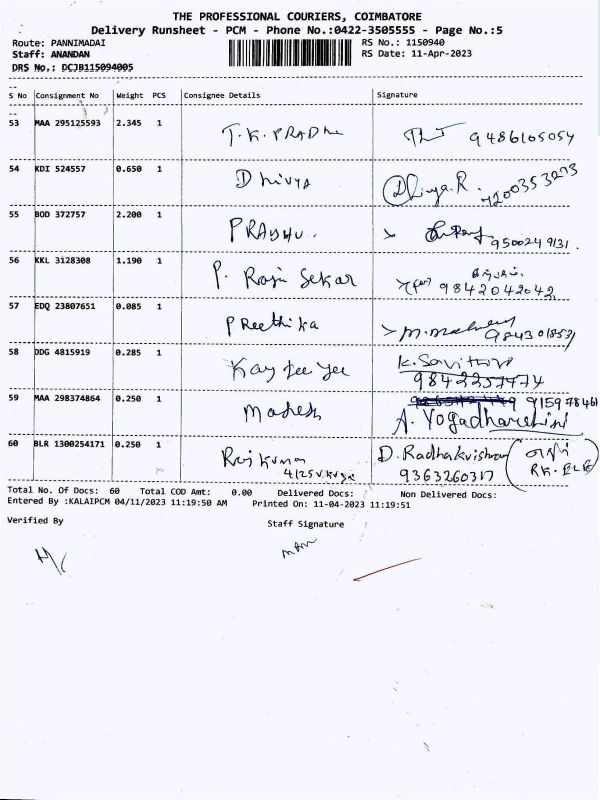 THE PROFESSIONAL COURIERS, COIMBATORE
Delivery Runsheet - PCM - Phone No.:0422-3505555 - Page No.:5
Route: PANNIMADAI
RS No.: 1150940
Staff: ANANDAN
RS Date: 11-Apr-2023
DRS No.: DCJB115094005
S No Consignment No Weight PCS Consignee Details Signature
53 MAA 295125593 2.345 1 T.K. PRADHu 9486105054
54 KDI 524557 0.650 1 Dhivya Dhivya.R. 7200353273
55 BOD 372757 2.200 1 PRABHU. 950024 9131.
56 KKL 3128308 1.190 1 P. Raja Sekar 9842042042
57 EDQ 23807651 0.085 1 PReethika 9843018521
58 DDG 4815919 0.285 1 Kay Pee Yee K. Savithiri
9842257474
59 MAA 298374864 0.250 1 Mahesh 915978461
A. Yogadharshini
60 BLR 1300254171 0.250 1 Rajkumar D. Radhakrishnan
9363260317
Total No. Of Docs: 60 Total COD Amt: 0.00 Delivered Docs: Non Delivered Docs:
Entered By :KALAIPCM 04/11/2023 11:19:50 AM Printed On: 11-04-2023 11:19:51
Verified By
Staff Signature